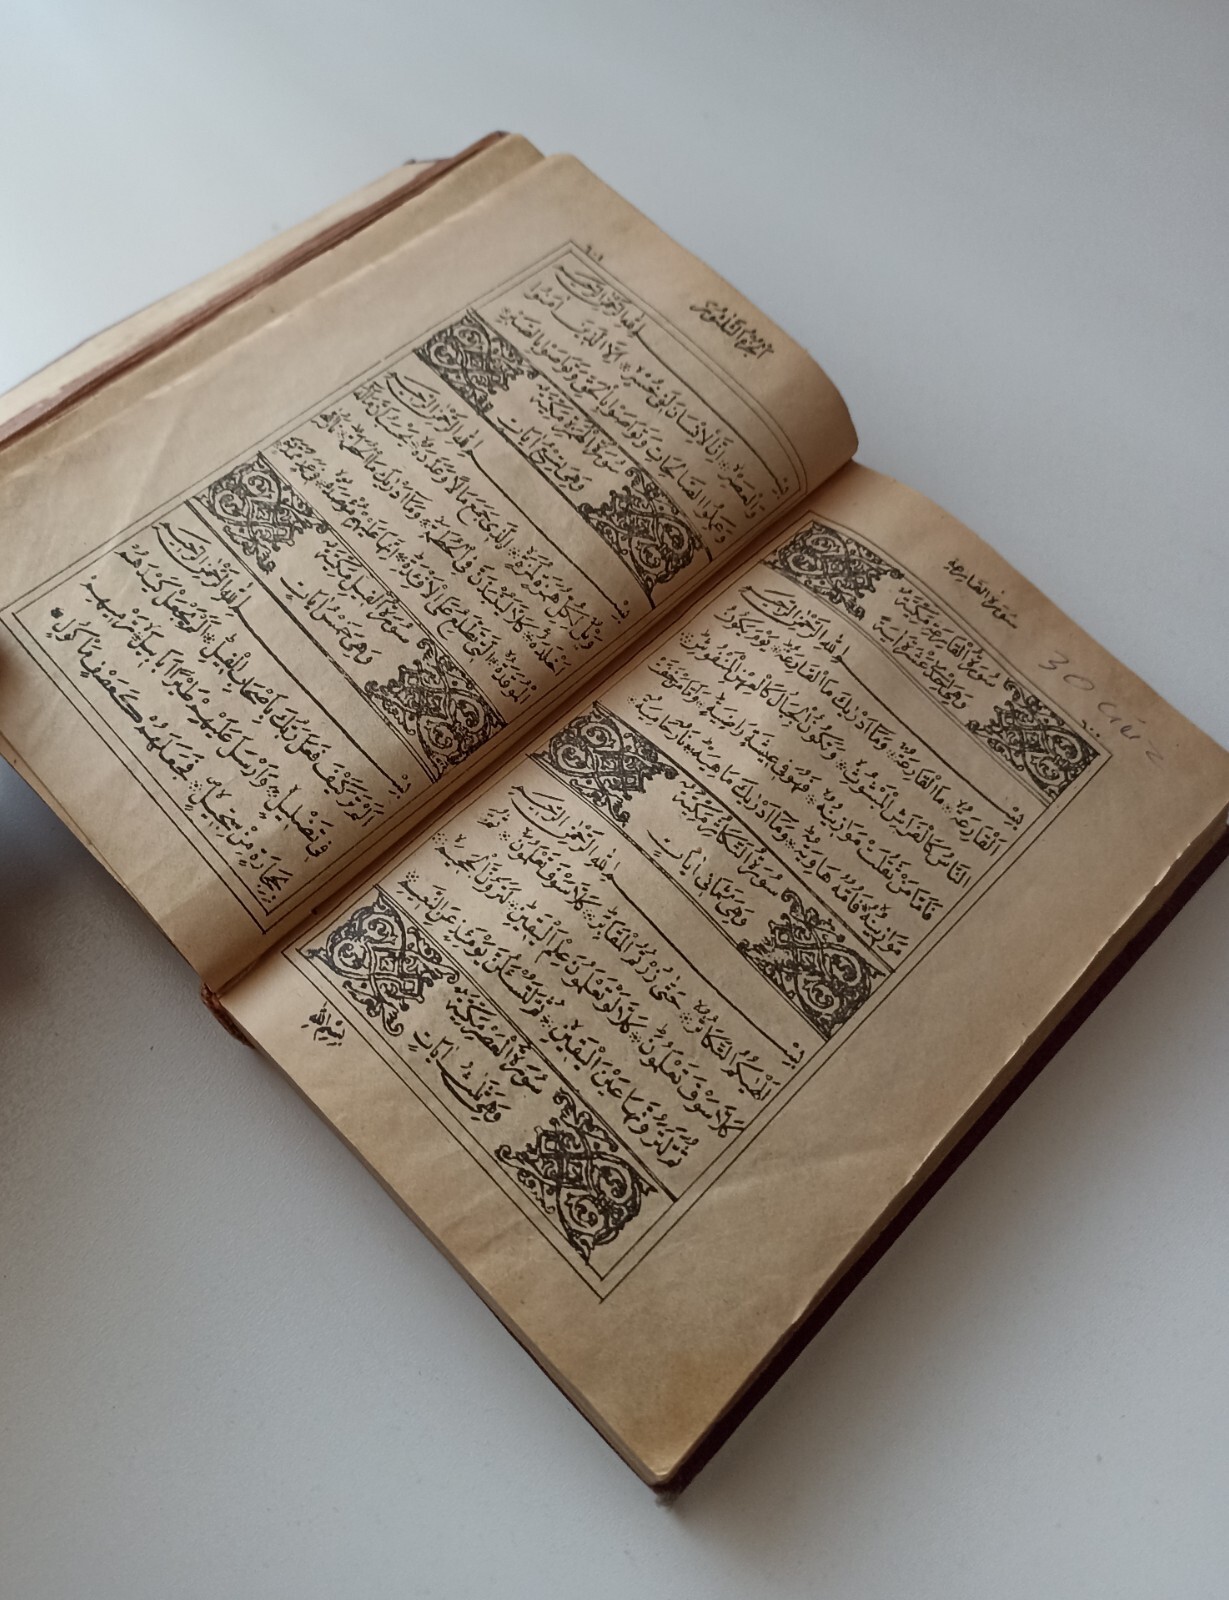 سورة القارعة
30 cüz
٦٠٠
سُورَةُ الْقَارِعَةِ مَكِّيَّةٌ
وَهِيَ اِحْدٰى عَشْرَةَ اٰيَةً
بِسْمِ اللّٰهِ الرَّحْمٰنِ الرَّحِيمِ
اَلْقَارِعَةُ ۞ مَا الْقَارِعَةُ ۞ وَمَٓا اَدْرٰيكَ مَا الْقَارِعَةُ ۞ يَوْمَ يَكُونُ
النَّاسُ كَالْفَرَاشِ الْمَبْثُوثِ ۞ وَتَكُونُ الْجِبَالُ كَالْعِهْنِ الْمَنْفُوشِ ۞
فَاَمَّا مَنْ ثَقُلَتْ مَوَازِينُهُ ۞ فَهُوَ فِى عِيشَةٍ رَاضِيَةٍ ۞ وَاَمَّا مَنْ خَفَّتْ
مَوَازِينُهُ ۞ فَاُمُّهُ هَاوِيَةٌ ۞ وَمَٓا اَدْرٰيكَ مَاهِيَهْ ۞ نَارٌ حَامِيَةٌ
سُورَةُ التَّكَاثُرِ مَكِّيَّةٌ
وَهِيَ ثَمَانِى اٰيَاتٍ
بِسْمِ اللّٰهِ الرَّحْمٰنِ الرَّحِيمِ
اَلْهٰيكُمُ التَّكَاثُرُ ۞ حَتّٰى زُرْتُمُ الْمَقَابِرَ ۞ كَلَّا سَوْفَ تَعْلَمُونَ ۞ ثُمَّ
كَلَّا سَوْفَ تَعْلَمُونَ ۞ كَلَّا لَوْ تَعْلَمُونَ عِلْمَ الْيَقِينِ ۞ لَتَرَوُنَّ الْجَحِيمَ ۞
ثُمَّ لَتَرَوُنَّهَا عَيْنَ الْيَقِينِ ۞ ثُمَّ لَتُسْئَلُنَّ يَوْمَئِذٍ عَنِ النَّعِيمِ
سُورَةُ الْعَصْرِ مَكِّيَّةٌ
وَهِيَ ثَلٰثُ اٰيَاتٍ
بِسْمِ اللّٰهِ
الجزء الثلثون
٦٠١
بِسْمِ اللّٰهِ الرَّحْمٰنِ الرَّحِيمِ
وَالْعَصْرِ ۞ اِنَّ الْاِنْسَانَ لَفِى خُسْرٍ ۞ اِلَّا الَّذِينَ اٰمَنُوا
وَعَمِلُوا الصَّالِحَاتِ وَتَوَاصَوْا بِالْحَقِّ وَتَوَاصَوْا بِالصَّبْرِ
سُورَةُ الْهُمَزَةِ مَكِّيَّةٌ
وَهِيَ تِسْعُ اٰيَاتٍ
بِسْمِ اللّٰهِ الرَّحْمٰنِ الرَّحِيمِ
وَيْلٌ لِكُلِّ هُمَزَةٍ لُمَزَةٍ ۞ اَلَّذِى جَمَعَ مَالًا وَعَدَّدَهُ ۞ يَحْسَبُ اَنَّ مَالَهُٓ
اَخْلَدَهُ ۞ كَلَّا لَيُنْبَذَنَّ فِى الْحُطَمَةِ ۞ وَمَٓا اَدْرٰيكَ مَا الْحُطَمَةُ ۞ نَارُ اللّٰهِ
الْمُوقَدَةُ ۞ اَلَّتِى تَطَّلِعُ عَلَى الْاَفْئِدَةِ ۞ اِنَّهَا عَلَيْهِمْ مُؤْصَدَةٌ ۞ فِى عَمَدٍ مُمَدَّدَةٍ
سُورَةُ الْفِيلِ مَكِّيَّةٌ
وَهِيَ خَمْسُ اٰيَاتٍ
بِسْمِ اللّٰهِ الرَّحْمٰنِ الرَّحِيمِ
اَلَمْ تَرَ كَيْفَ فَعَلَ رَبُّكَ بِاَصْحَابِ الْفِيلِ ۞ اَلَمْ يَجْعَلْ كَيْدَهُمْ
فِى تَضْلِيلٍ ۞ وَاَرْسَلَ عَلَيْهِمْ طَيْرًا اَبَابِيلَ ۞ تَرْمِيهِمْ
بِحِجَارَةٍ مِنْ سِجِّيلٍ ۞ فَجَعَلَهُمْ كَعَصْفٍ مَاْكُولٍ